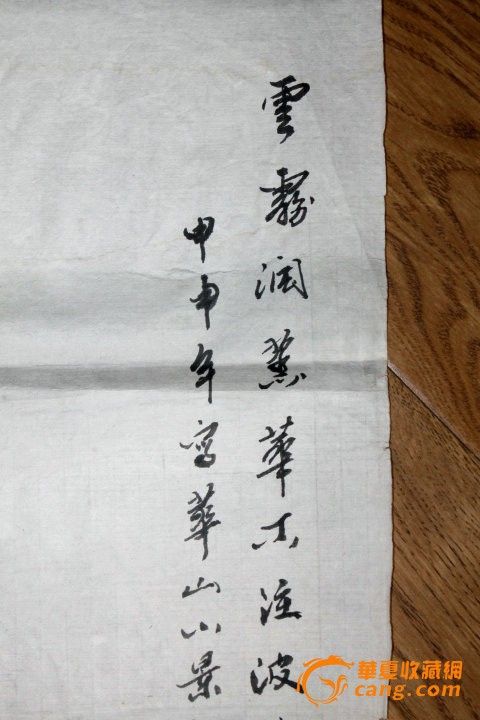 雲霧润蒸華不注波
甲申年寫華山小景
華夏收藏網
cang.com